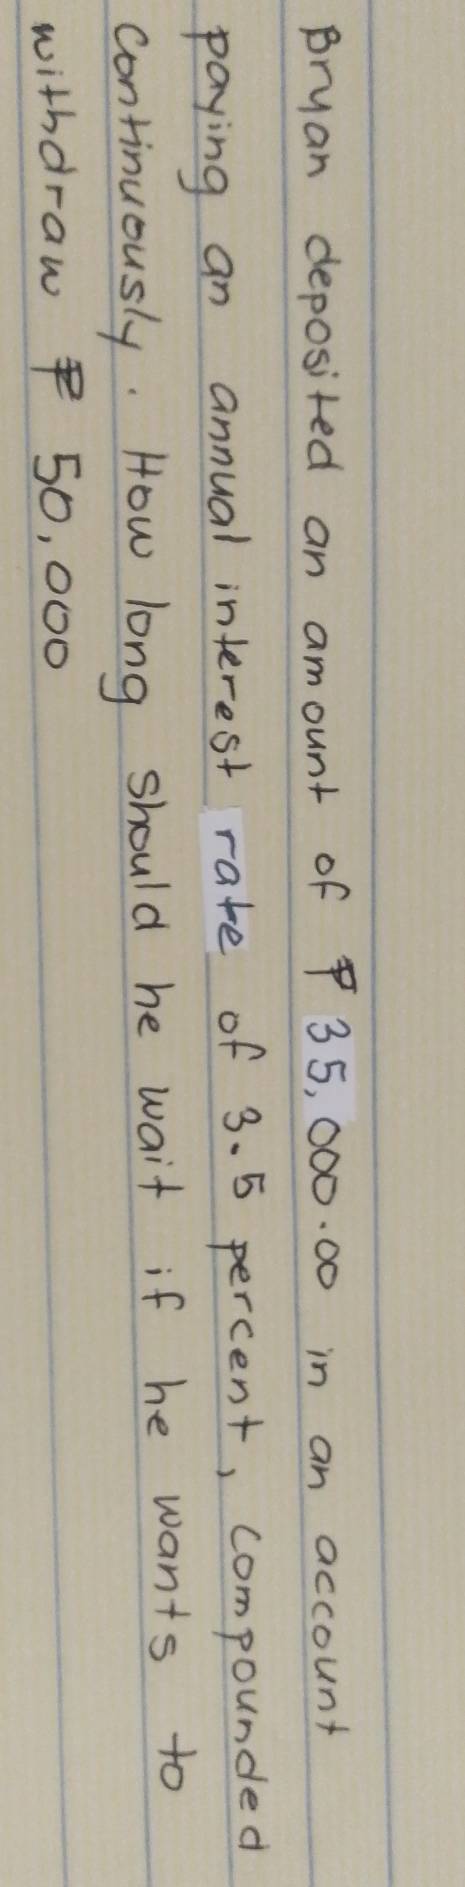 Bryan deposited an amount of ₱ 35,000.00 in an account
paying an annual interest rate of 3.5 percent, compounded
continuously. How long should he wait if he wants to
withdraw ₱ 50,000